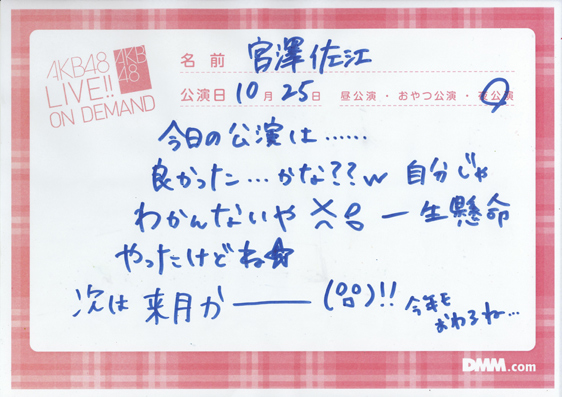 AKB48
LIVE!!
ON DEMAND
AKB
48
名前 宮澤佐江
公演日 10月25日 昼公演・おやつ公演・夜公演
今日の公演は……
良かった…かな??w 自分じゃ
わかんないや 一生懸命
やったけどね☆
次は来月か――― (°ロ°)!! 今年も
おわるね…
DMM.com